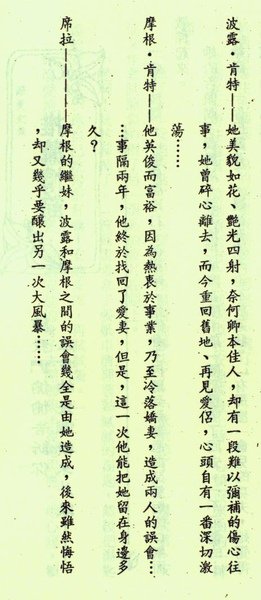 波露·肯特——她美貌如花、艷光四射，奈何卿本佳人，却有一段難以彌補的傷心往
事，她曾碎心離去，而今重回舊地、再見愛侶，心頭自有一番深切激
蕩……
摩根·肯特——他英俊而富裕，因為熱衷於事業，乃至冷落嬌妻，造成兩人的誤會…
…事隔兩年，他終於找回了愛妻，但是，這一次他能把她留在身邊多
久？
席拉————摩根的繼妹，波露和摩根之間的誤會幾全是由她造成，後來雖然悔悟
，却又幾乎要釀出另一次大風暴……